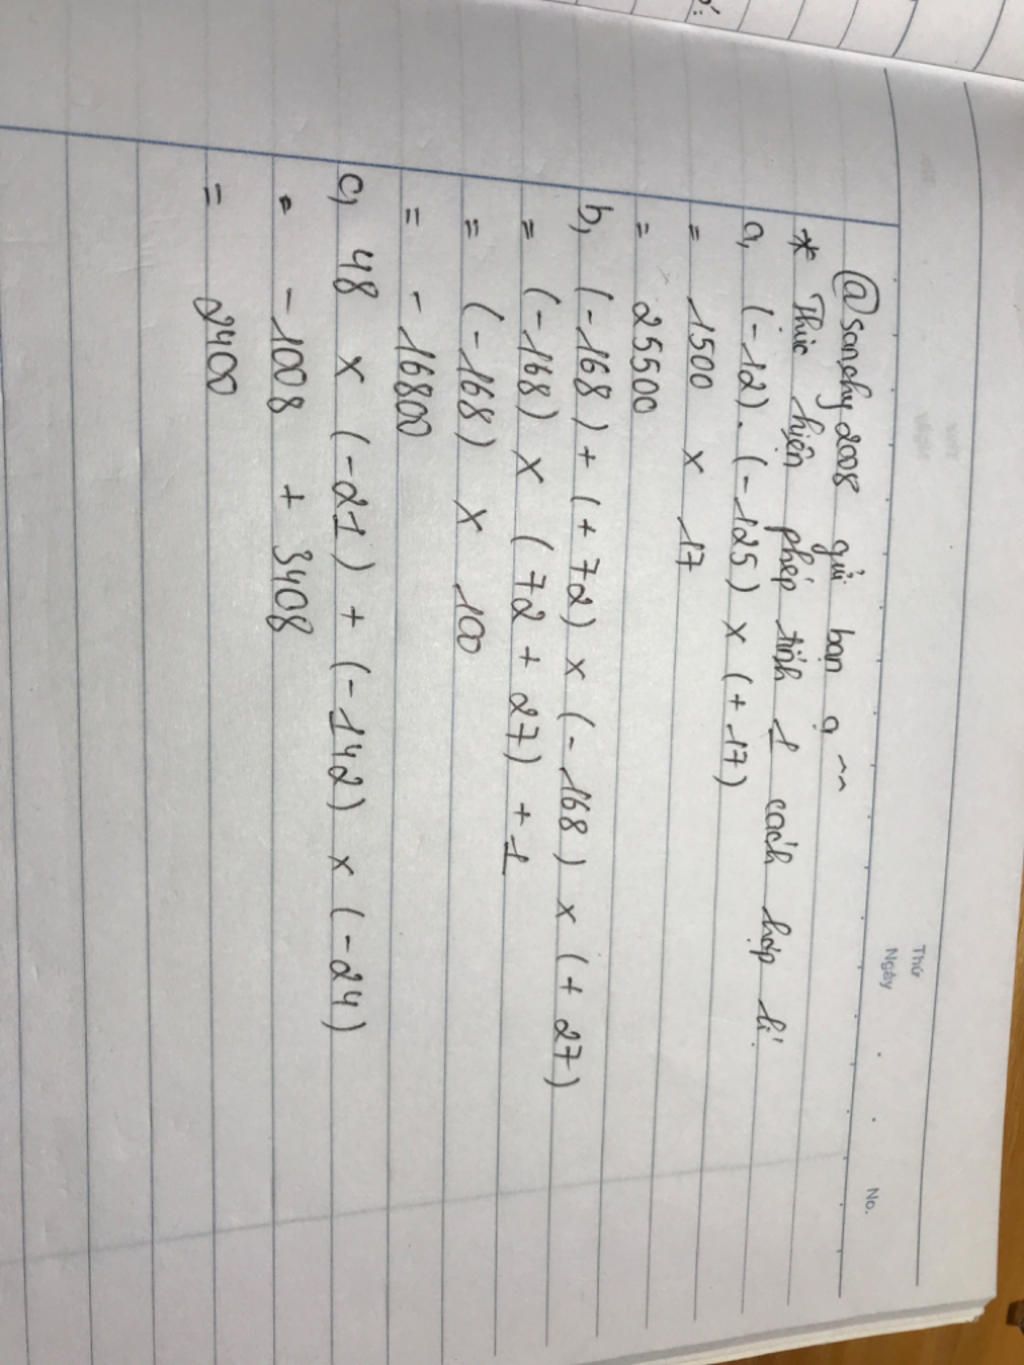 Thứ
Ngày . . No.
@sanchy2008 gửi bạn ạ ^^
* Thực hiện phép tính 1 cách hợp lí
a, (-12). (-125) x (+17)
= 1500 x 17
= 25500
b, (-168) + (+72) x (-168) x (+27)
= (-168) x (72 + 27) + 1
= (-168) x 100
= -16800
c, 48 x (-21) + (-142) x (-24)
= -1008 + 3408
= 2400